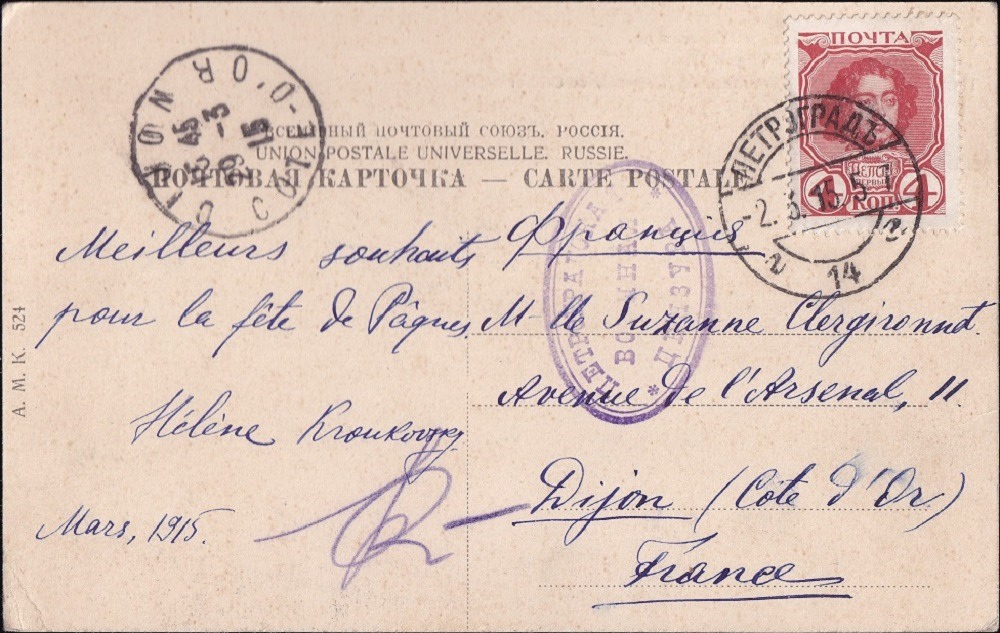 ПОЧТА
ПЕТРЪ ПЕРВЫЙ
4 КОП 4
ПЕТРОГРАДЪ
-2.3.15
14
DIJON
COTE-D'OR
45
20-3
15
ВСЕМІРНЫЙ ПОЧТОВЫЙ СОЮЗЪ. РОССІЯ.
UNION POSTALE UNIVERSELLE. RUSSIE.
ПОЧТОВАЯ КАРТОЧКА — CARTE POSTALE
ПЕТРОГРАДСКАЯ
ВОЕННАЯ
ЦЕНЗУРА
Meilleurs souhaits
pour la fête de Pâques.
Hélène
Mars, 1915.
Франція
Mlle Suzanne Clergironnet
Avenue de l'Arsenal, 11
Dijon (Côte d'Or)
France
А. М. К. 524